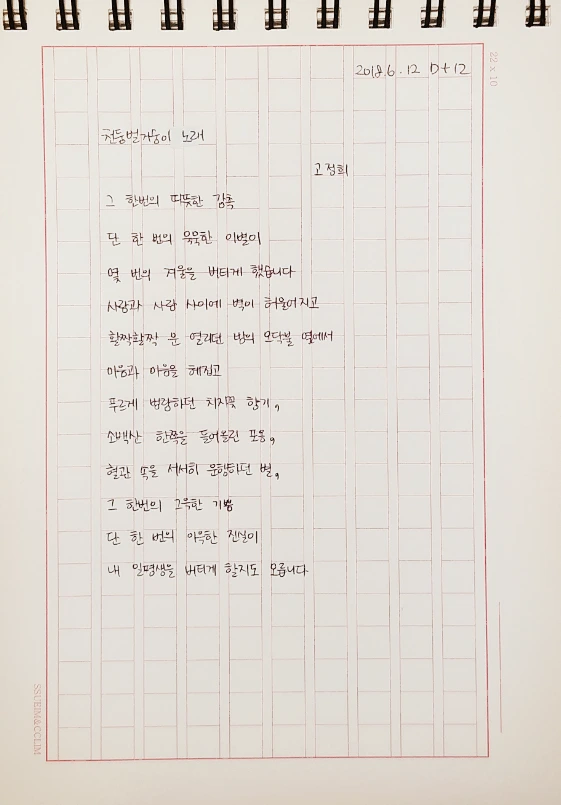 2018.6.12 D+12
천둥벌거숭이 노래
고정희
그 한번의 따뜻한 감촉
단 한 번의 묵묵한 이별이
몇 번의 겨울을 버티게 했습니다
사람과 사람 사이에 벽이 허물어지고
활짝활짝 문 열리던 밤의 모닥불 옆에서
마음과 마음을 헤집고
푸르게 범람하던 치자꽃 향기,
소백산 한쪽을 들어올린 포옹,
혈관 속을 서서히 운행하던 별,
그 한번의 그윽한 기쁨
단 한 번의 이윽한 진실이
내 일평생을 버티게 할지도 모릅니다
22 x 10
SSUEIM&CCLIM